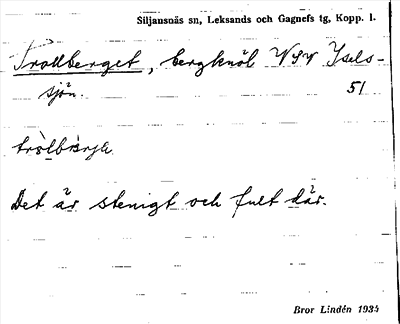 Siljansnäs sn, Leksands och Gagnefs tg, Kopp. l.
Trollberget, bergknöl VSV Isels-
sjön. 51
Det är stenigt och fult där.
Bror Lindén 1934